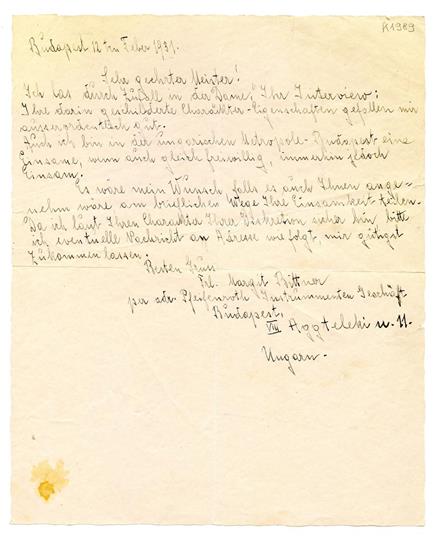 K1989
Budapest 12ten Feber 1931.
Sehr geehrter Meister!
Ich las durch Zufall in der Dame, Ihr Interview;
Ihre darin geschilderte Charäkter-Eigenschaften gefallen mir
aussergrädentlich gut.
Auch ich bin in der ungarischen Metropole-Budapest eine
Einsame, wenn auch gleich freiwillig, immerhin jedoch
Einsam.
Es wäre mein Wunsch, falls es auch Ihnen ange-
nehm wäre am brieflichen Wege Ihre Einsamkeit teilen.
Da ich laut Ihren Charackter Ihrer Diskretion sicher bin bitte
ich eventuelle Nachricht an Adresse wie folgt, mir gütigst
zukommen lassen.
Besten Gruss
Frl. Margit Bittner
per adr. Pfeifenroth Instrummenten Geschäft
Budapest,
VIII Aggteleki u. 11.
Ungarn.